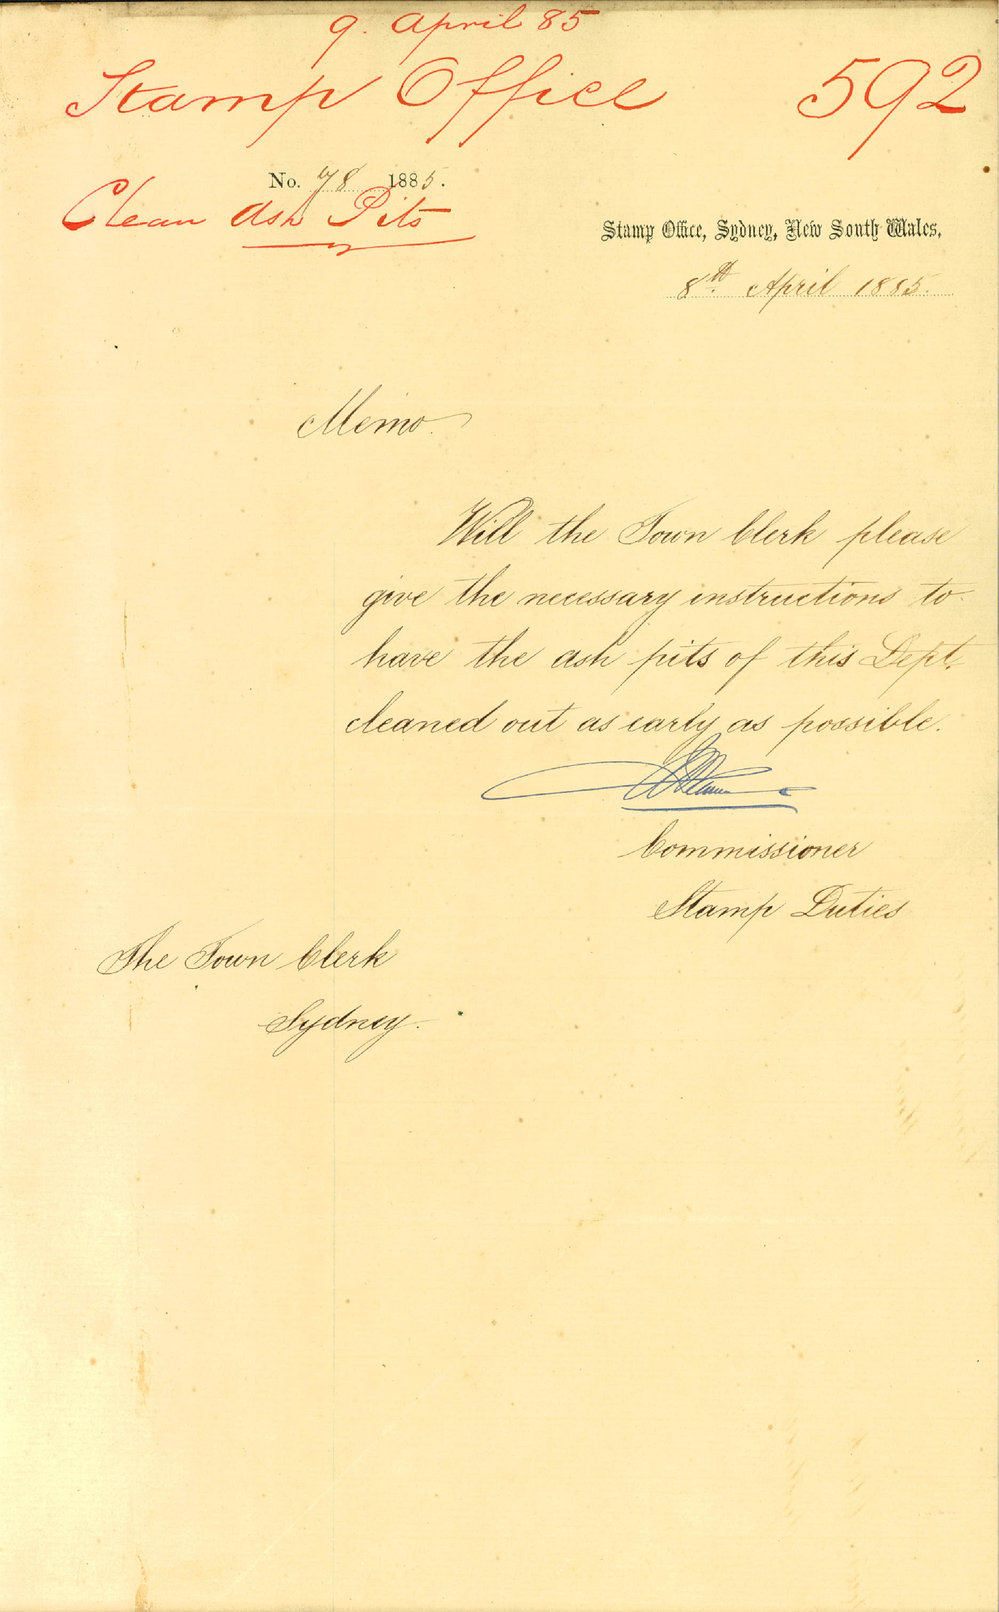 9. April 85
Stamp Office 592
No. 78 1885.
Clean Ash Pits
Stamp Office, Sydney, New South Wales,
8th. April 1885.
Memo.
Will the Town Clerk please
give the necessary instructions to
have the ash pits of this Dept.
cleaned out as early as possible.
Commissioner
Stamp Duties
The Town Clerk
Sydney.